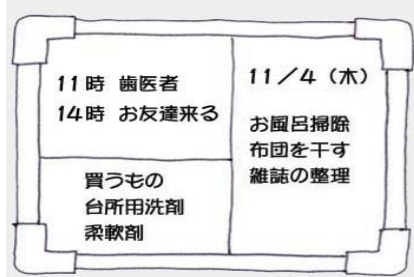 11時 歯医者
14時 お友達来る
買うもの
台所用洗剤
柔軟剤
11/4（木）
お風呂掃除
布団を干す
雑誌の整理